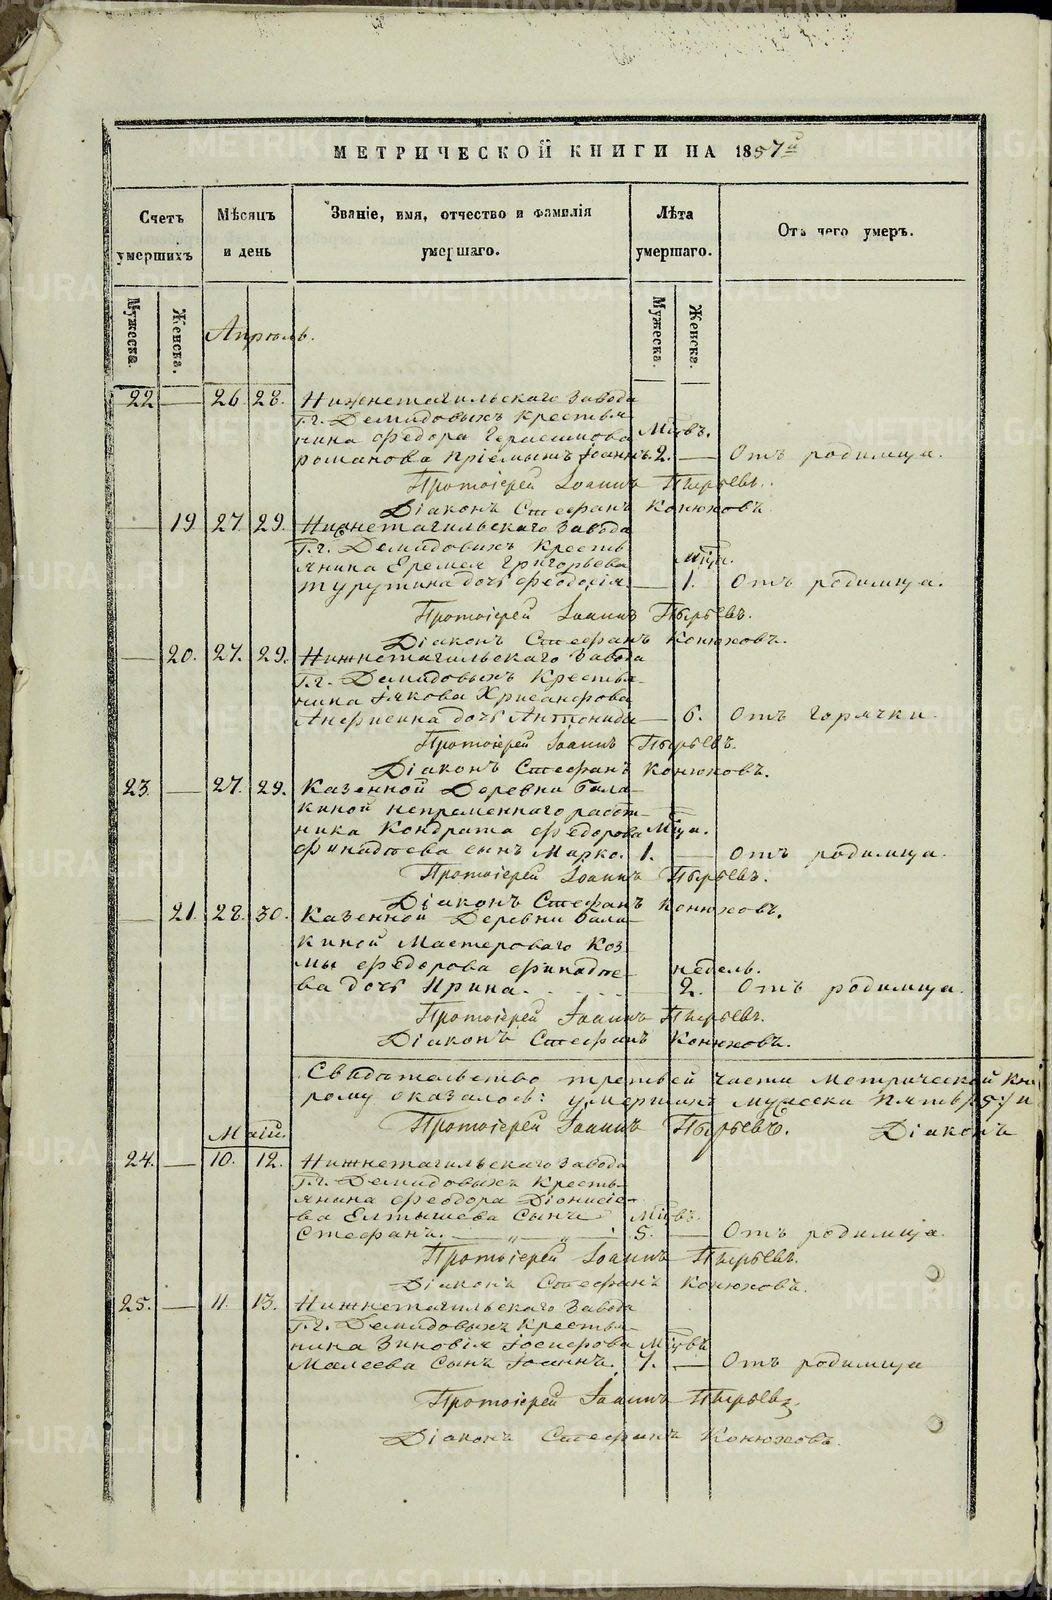 МЕТРИЧЕСКОЙ КНИГИ НА 1857й
Счетъ умершихъ
Мѣсяцъ и день
Званіе, имя, отчество и фамилія умершаго.
Лѣта умершаго.
Отъ чего умеръ.
Мужеска.
Женска.
Мужеска.
Женска.
Апрѣль.
22 — 26 28. Нижнетагильскаго завода
Г.г. Демидовыхъ крестья
нина Федора Герасимова Мцвъ.
Романова пріемышъ Іоаннъ. 2. — Отъ родимца.
Протоіерей Іоаннъ Пырьевъ.
Діаконъ Стефанъ Конюховъ.
— 19 27. 29. Нижнетагильскаго завода
Г.г. Демидовыхъ кресть
янина Еремея Григорьева Мцъ.
Турутина дочь Феодосія — 1. Отъ родимца.
Протоіерей Іоаннъ Пырьевъ.
Діаконъ Стефанъ Конюховъ.
— 20. 27. 29. Нижнетагильскаго завода
Г.г. Демидовыхъ крестья-
нина Іякова Хрисанфова
Анфисина дочь Антонида — 6. Отъ горячки.
Протоіерей Іоаннъ Пырьевъ.
Діаконъ Стефанъ Конюховъ.
23 — 27. 29. Казенной Деревни Бала-
киной непременнаго работ-
ника Кондрата Федорова Мца.
сынъ Марко. 1. — Отъ родимца.
Протоіерей Іоаннъ Пырьевъ.
Діаконъ Стефанъ Конюховъ.
— 21. 28. 30. Казенной Деревни Бала-
киной Мастероваго Коз
мы Федорова недель.
дочь Ирина. 2. Отъ родимца.
Протоіерей Іоаннъ Пырьевъ.
Діаконъ Стефанъ Конюховъ.
Свидѣтельство третьей части Метрической Кни
рому оказалось: умершихъ мужеска пять /5:/ и
Протоіерей Іоаннъ Пырьевъ. Діаконъ
Маій.
24. — 10. 12. Нижнетагильскаго завода
Г.г. Демидовыхъ кресть-
янина Феодора Діонисіе-
ва Елтышева Сынъ Мцвъ.
Стефанъ. — „ — „ — 5. — Отъ родимца.
Протоіерей Іоаннъ Пырьевъ.
Діаконъ Стефанъ Конюховъ.
25. — 11. 13. Нижнетагильскаго завода
Г.г. Демидовыхъ крестья-
нина Зиновія Іосифова Мцвъ
Малеева Сынъ Іоаннъ. 7. — Отъ родимца
Протоіерей Іоаннъ Пырьевъ.
Діаконъ Стефанъ Конюховъ.
METRIKI.GASO-URAL.RU